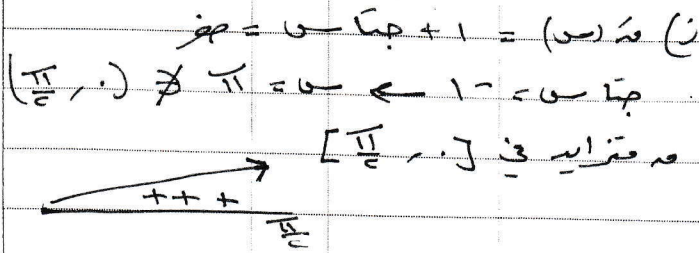 ز) قَ (س) = ١ + جتا س = صفر
جتا س = -١ ← س = π ∌ (٠ ، π/٢)
ق متزايد في [٠ ، π/٢]
+ + +
π/٢